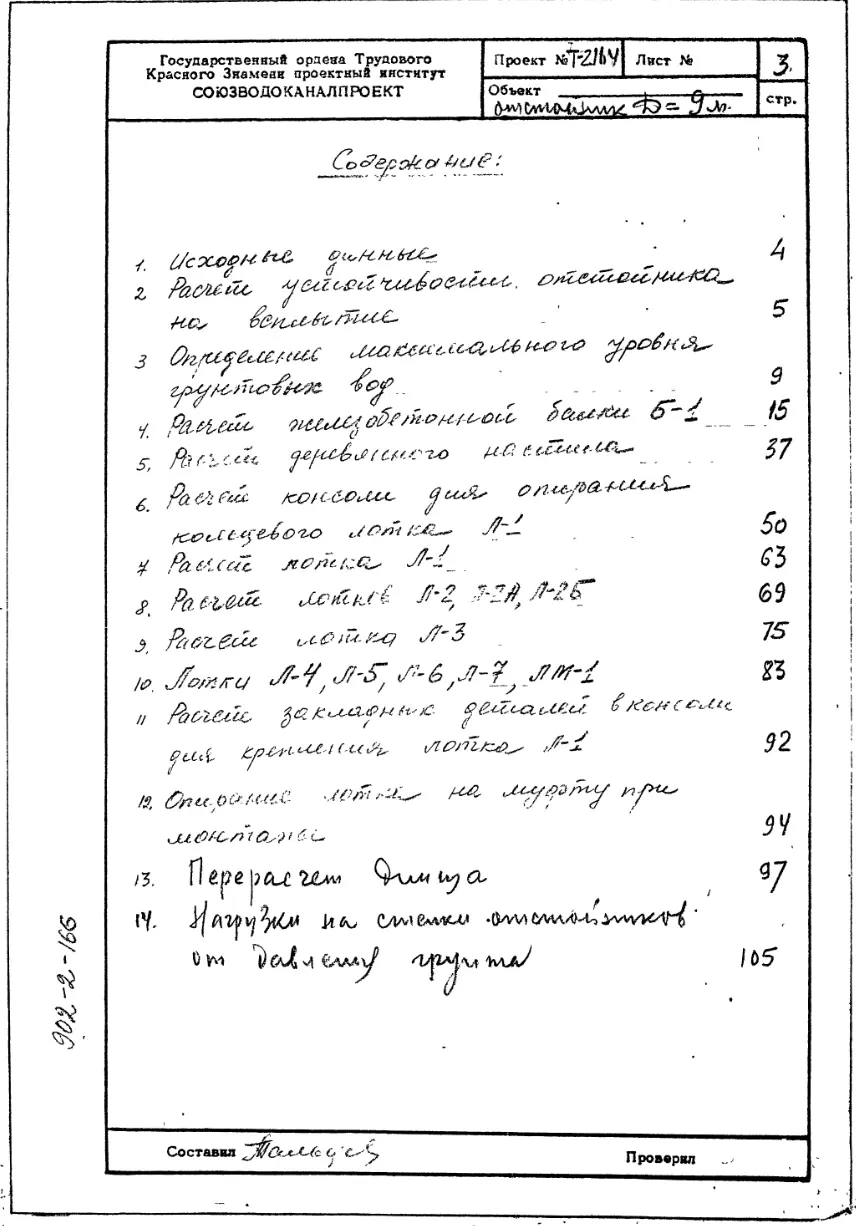 Государственный ордена Трудового
Красного Знамени проектный институт
СОЮЗВОДОКАНАЛПРОЕКТ
Проект № Т-2164 Лист №
Объект
отстойник D=9м.
3.
стр.
Содержание:
1. Исходные данные 4
2. Расчет устойчивости отстойника
на всплытие 5
3 Определение максимального уровня
грунтовых вод 9
4. Расчет железобетонной балки Б-1 15
5. Расчет деревянного настила 37
6. Расчет консоли для опирания
кольцевого лотка Л-1 50
7 Расчет лотка Л-1 63
8. Расчет лотков Л-2, Л-2А, Л-2Б 69
9. Расчет лотка Л-3 75
10. Лотки Л-4, Л-5, Л-6, Л-7, ЛМ-1 83
11 Расчет закладных деталей в консоли
для крепления лотка Л-1 92
12. Опирание лотка на муфту при
монтаже 94
13. Перерасчет днища 97
14. Нагрузки на стенки отстойников
от давления грунта 105
902-2-166
Составил
Проверил